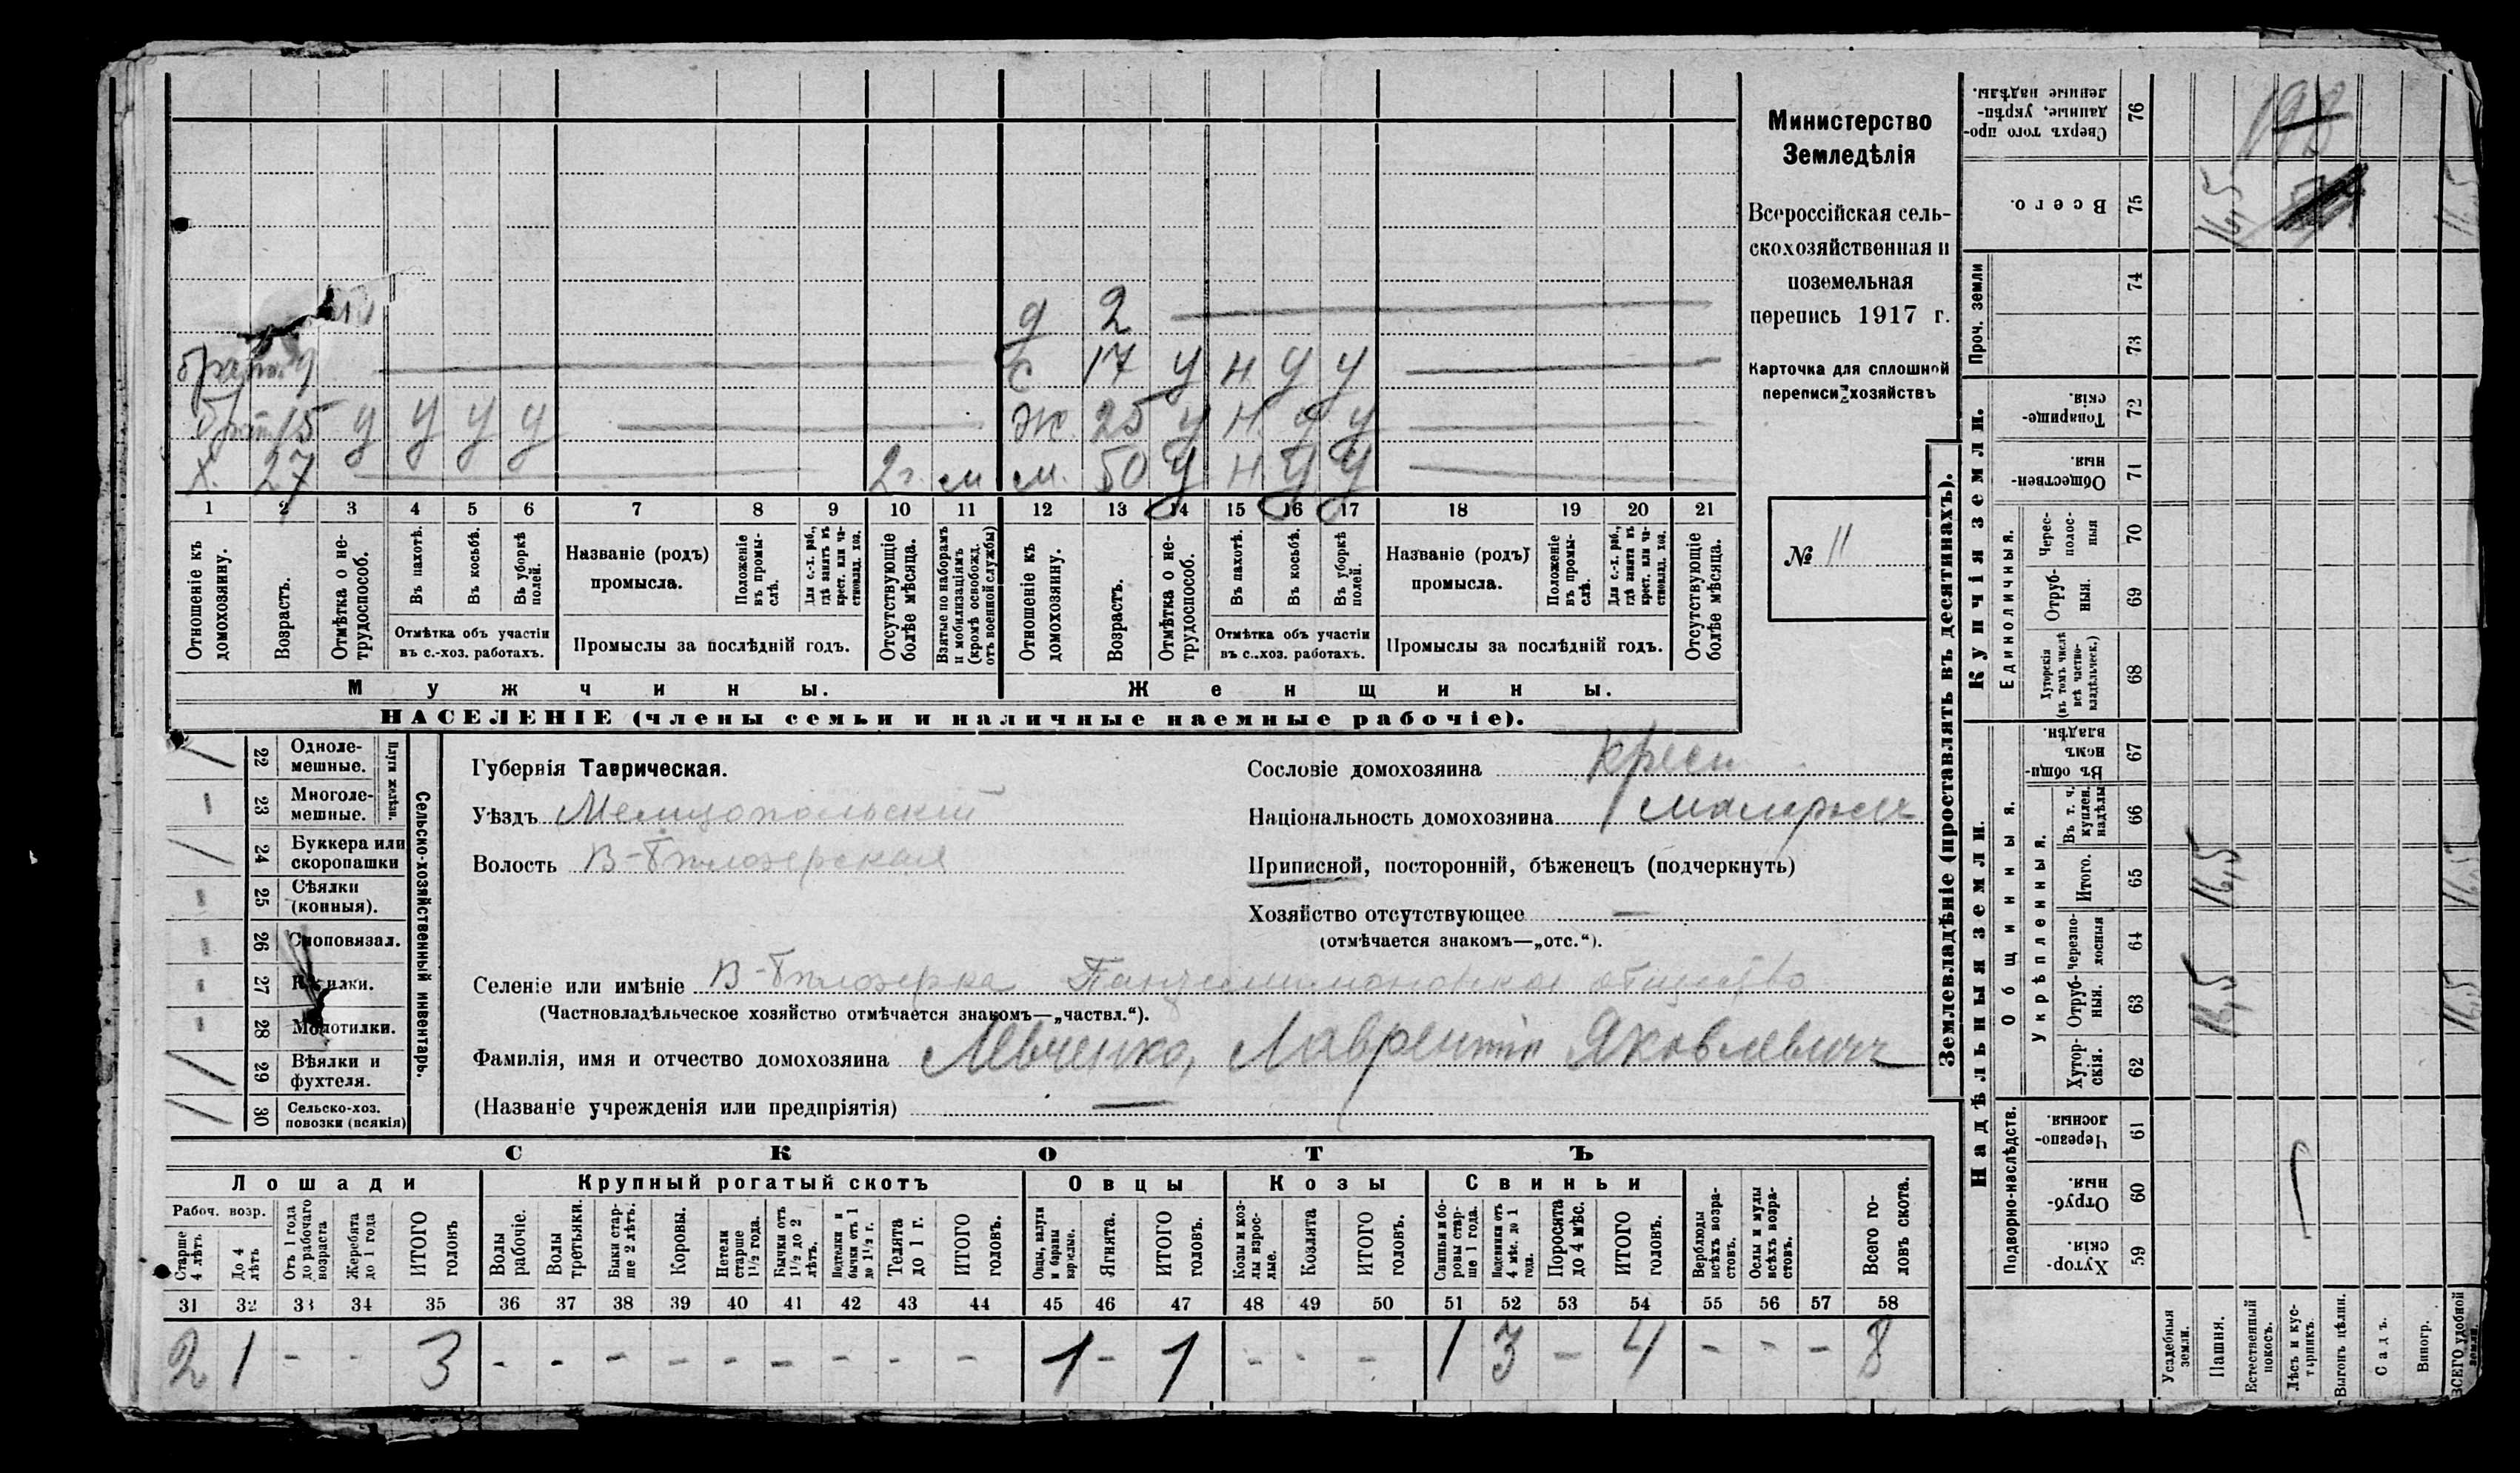 Министерство
Земледѣлія
Всероссійская сель-
скохозяйственная и
поземельная
перепись 1917 г.
Карточка для сплошной
переписи хозяйствъ
№ 11
д 2
брат 9
с 17 у н у у
брат 15 у у у у
ж 25 у н у у
х. 27 2г. м
м. 50 у н у у
1 2 3 4 5 6 7 8 9 10 11 12 13 14 15 16 17 18 19 20 21
Отношеніе къ домохозяину.
Возрастъ.
Отмѣтка о не-трудоспособ.
Въ пахотѣ.
Въ косьбѣ.
Въ уборкѣ полей.
Отмѣтка объ участіи
въ с.-хоз. работахъ.
Названіе (родъ)
промысла.
Положеніе въ промы-слѣ.
Для с.-х. раб., гдѣ занятъ въ крест. или ча-стновлад. хоз.
Промыслы за послѣдній годъ.
Отсутствующіе болѣе мѣсяца.
Взятые по наборамъ и мобилизаціямъ (кромѣ освобожд. отъ военной службы)
Отношеніе къ домохозяину.
Возрастъ.
Отмѣтка о не-трудоспособ.
Въ пахотѣ.
Въ косьбѣ.
Въ уборкѣ полей.
Отмѣтка объ участіи
въ с.-хоз. работахъ.
Названіе (родъ)
промысла.
Положеніе въ промы-слѣ.
Для с.-х. раб., гдѣ занята въ крест. или ча-стновлад. хоз.
Промыслы за послѣдній годъ.
Отсутствующіе болѣе мѣсяца.
Мужчины.
Женщины.
НАСЕЛЕНІЕ (члены семьи и наличные наемные рабочіе).
22 Одноле-мешные.
23 Многоле-мешные.
Плуги желѣзн.
24 Буккера или скоропашки
25 Сѣялки (конныя).
26 Сноповязал.
27 Косилки.
28 Молотилки.
29 Вѣялки и фухтеля.
30 Сельско-хоз. повозки (всякія)
Сельско-хозяйственный инвентарь.
Губернія Таврическая.
Уѣздъ Мелитопольскій
Волость В-Бѣлозерская
Сословіе домохозяина крест
Національность домохозяина малорос
Приписной, посторонній, бѣженецъ (подчеркнуть)
Хозяйство отсутствующее —
(отмѣчается знакомъ—„отс.“).
Селеніе или имѣніе В-Бѣлозерка Пантелимоновское общество
(Частновладѣльческое хозяйство отмѣчается знакомъ—„частвл.“).
Фамилія, имя и отчество домохозяина Левченко, Лаврентій Яковлевичъ
(Названіе учрежденія или предпріятія) —
СКОТЪ
Лошади
Крупный рогатый скотъ
Овцы
Козы
Свиньи
Рабоч. возр.
Старше 4 лѣтъ
До 4 лѣтъ
Отъ 1 года до рабочаго возраста
Жеребята до 1 года
ИТОГО головъ
Волы рабочіе.
Волы третьяки.
Быки стар-ше 2 лѣтъ.
Коровы.
Нетели старше 1½ года.
Бычки отъ 1½ до 2 лѣтъ.
Подтелки и бычки отъ 1 до 1½ г.
Телята до 1 г.
ИТОГО головъ.
Овцы, валухи и бараны взрослые.
Ягнята.
ИТОГО головъ.
Козы и коз-лы взрос-лые.
Козлята
ИТОГО головъ.
Свиньи и бо-ровы стар-ше 1 года.
Подсвинки отъ 4 мѣс. до 1 года.
Поросята до 4 мѣс.
ИТОГО головъ.
Верблюды всѣхъ возра-стовъ.
Ослы и мулы всѣхъ возра-стовъ.
Всего го-ловъ скота.
31 32 33 34 35 36 37 38 39 40 41 42 43 44 45 46 47 48 49 50 51 52 53 54 55 56 57 58
2 1 - - 3 - - - - - - - - - 1 - 1 - - - 1 3 - 4 - - - 8
Землевладѣніе (проставлять въ десятинахъ).
Надѣльныя земли.
Купчія земли.
Проч. земли
Подворно-наслѣдств.
Общинныя.
Укрѣпленныя.
Единоличныя.
Хутор-скія. 59
Отруб-ныя. 60
Черезпо-лосныя 61
Хутор-скія. 62
Отруб-ныя. 63
Черезпо-лосныя 64
Итого. 65
Въ т. ч. куплен. надѣлы 66
Въ общи-номъ владѣн. 67
Хуторскія (въ томъ числѣ всѣ частно-владѣльческ.) 68
Отруб-ныя. 69
Черес-полос-ныя 70
Обществен-ныя. 71
Товарище-скія. 72
73
74
Всего. 75
Сверхъ того про-данные, укрѣп-ленные надѣлы. 76
Усадебныя земли.
Пашня.
Естественный покосъ.
Лѣсъ и кус-тарникъ.
Выгонъ цѣлин.
Садъ.
Виногр.
ВСЕГО удобной земли.
16,5
16,5
16,5
16,5
16,5
16,5
198